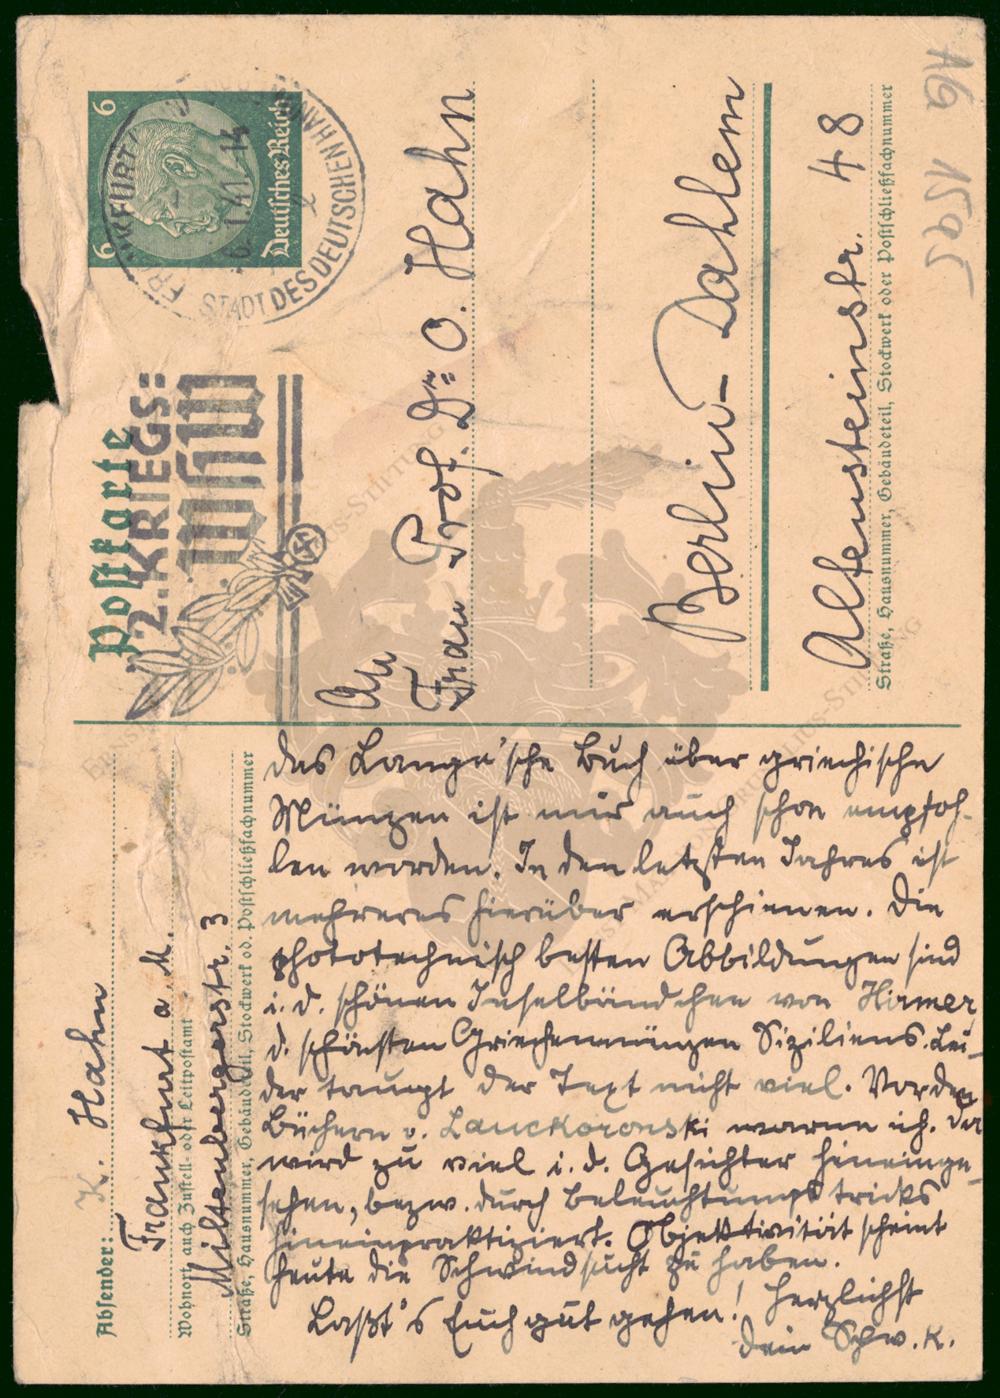 Postkarte
6 6
Deutsches Reich
FRANKFURT
6.1.41-14
STADT DES DEUTSCHEN HANDWERKS
2. KRIEGS=
WHW
An
Frau Prof. Dr. O. Hahn
Berlin-Dahlem
Altensteinstr. 48
Straße, Hausnummer, Gebäudeteil, Stockwerk oder Postschließfachnummer
Absender: K. Hahn
Frankfurt a. M.
Wohnort, auch Zustell- oder Leitpostamt
Miltenbergerstr. 3
Straße, Hausnummer, Gebäudeteil, Stockwerk od. Postschließfachnummer
das Lange'sche Buch über griechische
Münzen ist mir auch schon empfoh-
len worden. In den letzten Jahren ist
mehreres hierüber erschienen. Die
phototechnisch besten Abbildungen sind
i. d. schönen Inselbändchen von Hirmer
d. schönsten Griechenmünzen Siziliens. Lei-
der taugt der Text nicht viel. Vor den
Büchern v. Lanckoronski warne ich. Da
wird zu viel i. d. Gesichter hineinge-
sehen, bezw. durch Beleuchtungstricks
hineinpraktiziert. Objektivität scheint
heute die Schwindsucht zu haben.
Laßt's Euch gut gehen! Herzlichst
Dein Schw. K.